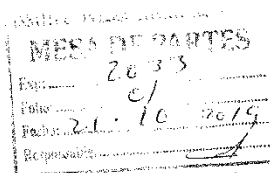 MESA DE PARTES
Exp: 2033
Folio: 01
Fecha: 21 . 10 2019
Responsable